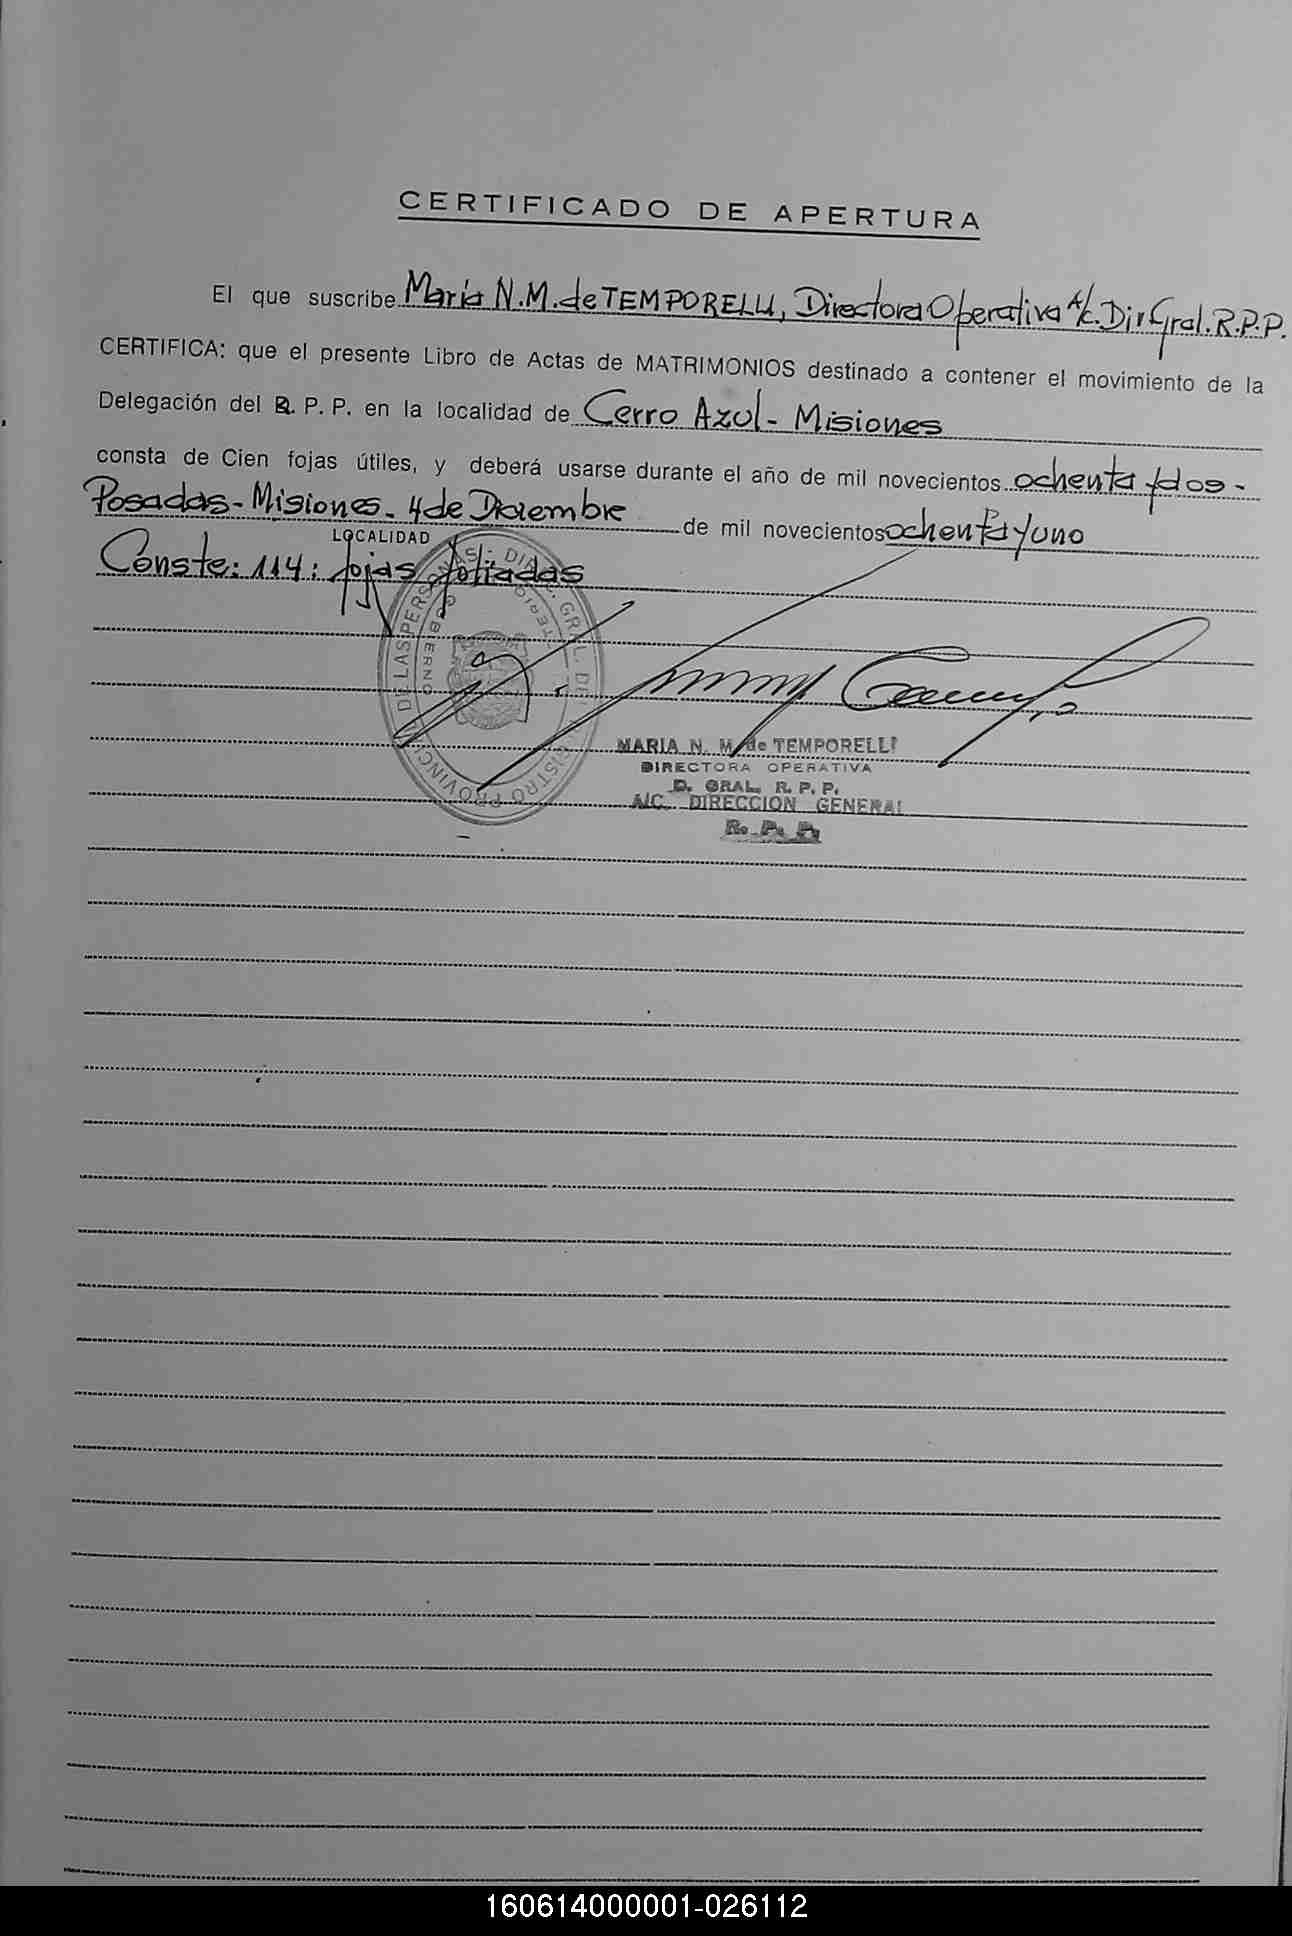 CERTIFICADO DE APERTURA
El que suscribe María N.M. de TEMPORELLI, Directora Operativa A/c. Dir Gral. R.P.P.
CERTIFICA: que el presente Libro de Actas de MATRIMONIOS destinado a contener el movimiento de la
Delegación del R. P. P. en la localidad de Cerro Azul - Misiones
consta de Cien fojas útiles, y deberá usarse durante el año de mil novecientos ochenta y dos -
Posadas - Misiones - 4 de Diciembre de mil novecientos ochenta y uno
LOCALIDAD
Conste: 114: fojas foliadas
DIREC. GRAL. DEL REGISTRO PROVINCIAL DE LAS PERSONAS
GOBIERNO
MARIA N. M. de TEMPORELLI
DIRECTORA OPERATIVA
D. GRAL. R. P. P.
A/C. DIRECCION GENERAL
R. P. P.
160614000001-026112